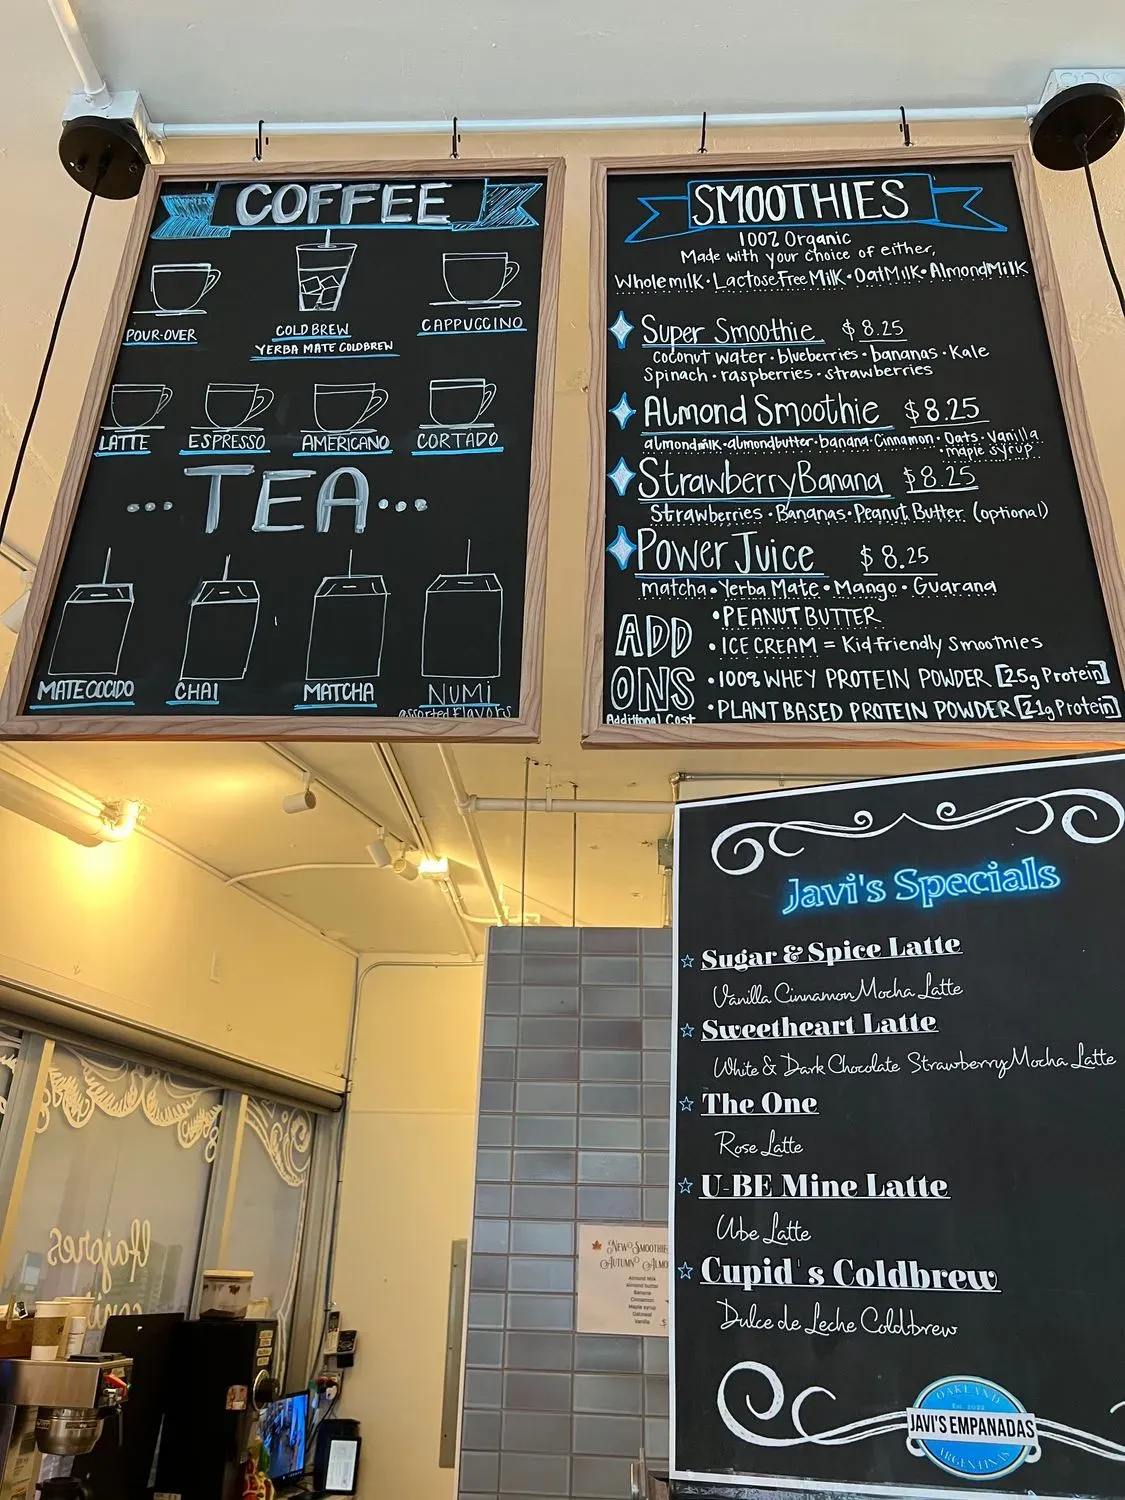 COFFEE
POUR-OVER
COLD BREW
YERBA MATE COLDBREW
CAPPUCCINO
LATTE
ESPRESSO
AMERICANO
CORTADO
...TEA...
MATECOCIDO
CHAI
MATCHA
NUMi
assorted flavors
SMOOTHIES
100% Organic
Made with your choice of either,
Whole milk • Lactose Free Milk • Oat Milk • Almond Milk
Super Smoothie $8.25
coconut water • blueberries • bananas • Kale
Spinach • raspberries • strawberries
Almond Smoothie $8.25
almondmilk • almondbutter • banana • Cinnamon • Oats • Vanilla
• maple syrup
Strawberry Banana $8.25
Strawberries • Bananas • Peanut Butter (optional)
Power Juice $8.25
matcha • Yerba Mate • Mango • Guarana
ADD ONS
Additional Cost
• PEANUT BUTTER
• ICE CREAM = Kid friendly Smoothies
• 100% WHEY PROTEIN POWDER [25g Protein]
• PLANT BASED PROTEIN POWDER [21g Protein]
Javi's Specials
☆ Sugar & Spice Latte
Vanilla Cinnamon Mocha Latte
☆ Sweetheart Latte
White & Dark Chocolate Strawberry Mocha Latte
☆ The One
Rose Latte
☆ U-BE Mine Latte
Ube Latte
☆ Cupid's Coldbrew
Dulce de Leche Coldbrew
OAKLAND
Est. 2022
JAVI'S EMPANADAS
ARGENTINAS
New Smoothie
Autumn Almo
Almond Milk
Almond butter
Banana
Cinnamon
Maple syrup
Oatmeal
Vanilla
$